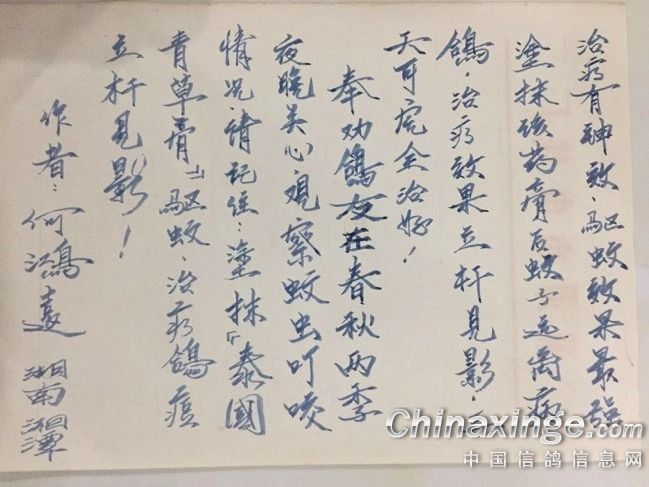 治疗有神效、驱蚊效果最强
塗抹该药膏后蚊子远离病
鸽，治疗效果立杆见影，
天可完全治好！
奉劝鸽友在春秋两季
夜晚关心、观察蚊虫叮咬
情况，请记住：塗抹『泰國
青草膏』驱蚊、治疗鸽痘
立杆见影！
作者：何鸿遠 湖南湘潭
Chinaxinge.com
中国信鸽信息网